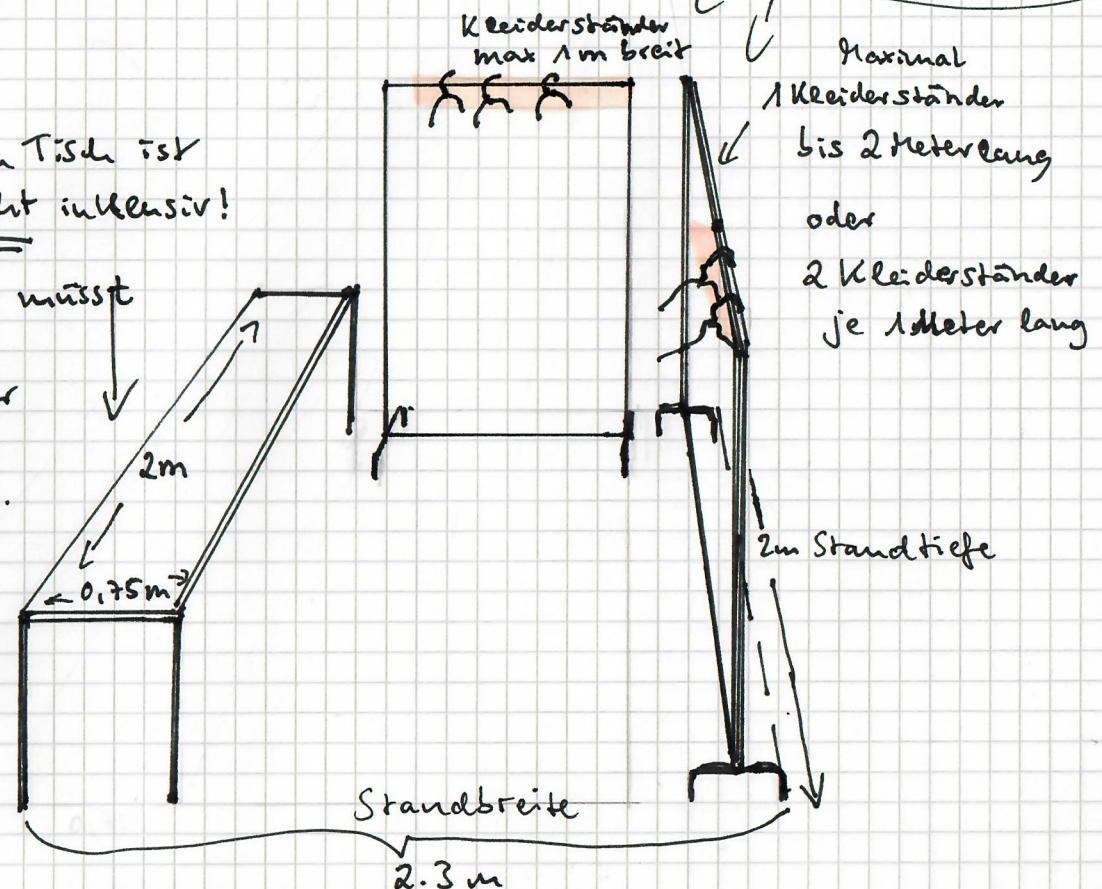 Kleiderständer
max 1m breit
Maximal
1 Kleiderständer
bis 2 Meter lang
oder
2 Kleiderständer
je 1 Meter lang
Tisch ist
inklusiv!
müsst
2m
0,75m
2m Standtiefe
Standbreite
2.3 m